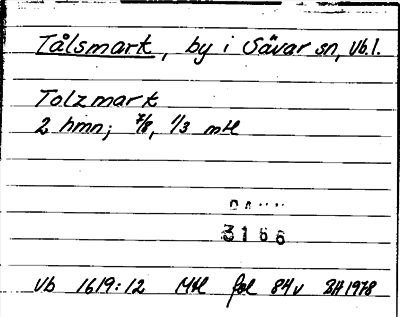 Tålsmark, by i Sävar sn, Vb.l.
Tolzmark
2 hmn; 7/8, 1/3 mtl
3166
Vb 1619:12 Mtl fol 84v BH 1978